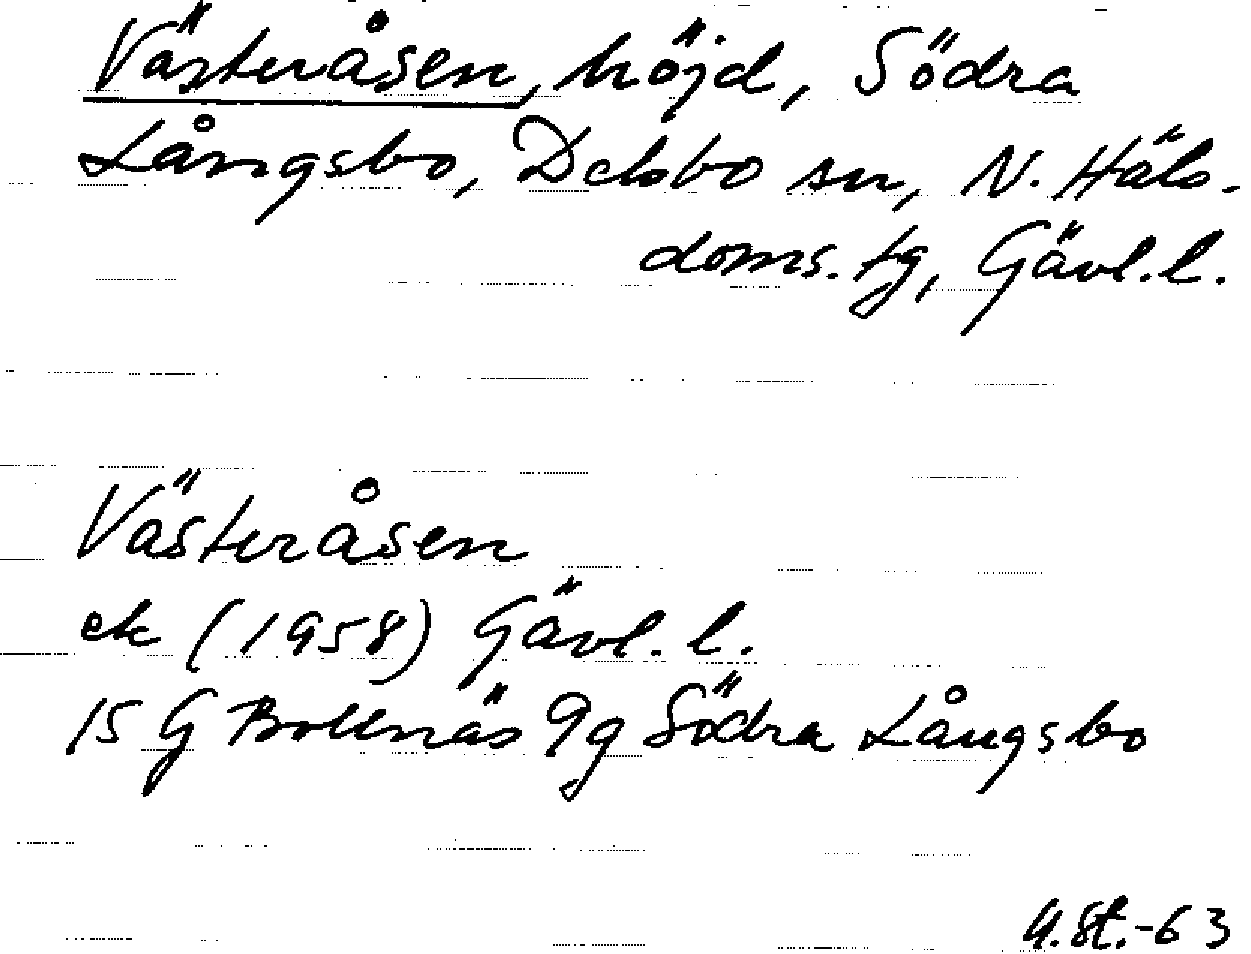 Västeråsen, höjd, Södra
Långsbo, Delsbo sn, N. Häls-
doms. tg, Gävl. l.
Västeråsen
ek (1958) Gävl. l.
15 G Bollnäs 9g Södra Långsbo
St.-63